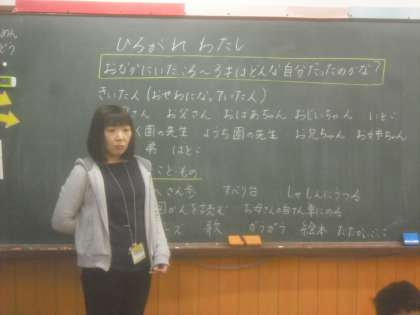 めん
どう
ひろがれ わたし
おなかにいたころ〜うまはどんな自分だったのかな?
きいた人(おせわになっていた人)
さん お父さん おばあちゃん おじいちゃん いとこ
く園の先生 ようち園の先生 お兄ちゃん
弟 はとこ
こと・もの
さん歩 すべり台 しゃしんにうつる
図かんを読む お母さんの自てん車にのる
ズ 歌 がらがら 絵本